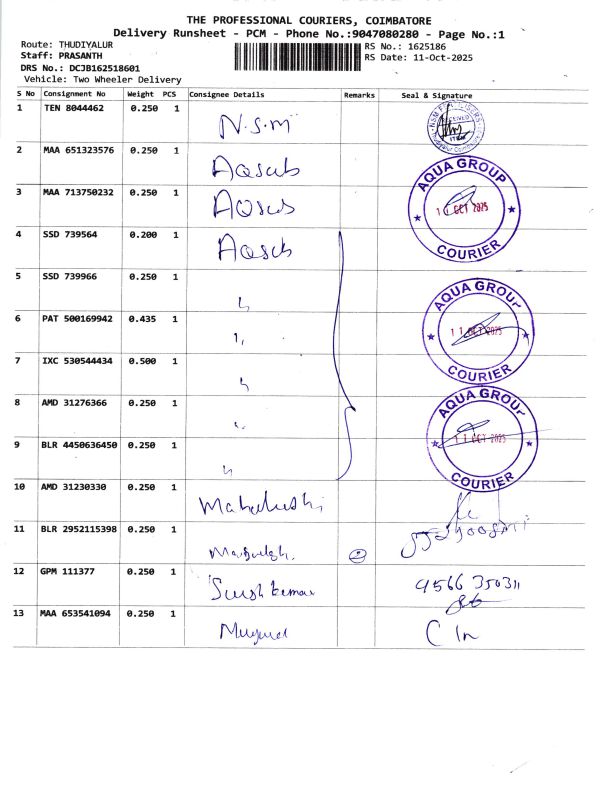 THE PROFESSIONAL COURIERS, COIMBATORE
Delivery Runsheet - PCM - Phone No.:9047080280 - Page No.:1
Route: THUDIYALUR RS No.: 1625186
Staff: PRASANTH RS Date: 11-Oct-2025
DRS No.: DCJB162518601
Vehicle: Two Wheeler Delivery
S No Consignment No Weight PCS Consignee Details Remarks Seal & Signature
1 TEN 8044462 0.250 1 N.S.M
2 MAA 651323576 0.250 1
3 MAA 713750232 0.250 1
AQUA GROUP
OCT 2025
COURIER
4 SSD 739564 0.200 1
5 SSD 739966 0.250 1
6 PAT 500169942 0.435 1
AQUA GROUP
11 OCT 2025
COURIER
7 IXC 530544434 0.500 1
8 AMD 31276366 0.250 1
9 BLR 4450636450 0.250 1
AQUA GROUP
11 OCT 2025
COURIER
10 AMD 31230330 0.250 1
11 BLR 2952115398 0.250 1
12 GPM 111377 0.250 1 9566 350311
13 MAA 653541094 0.250 1